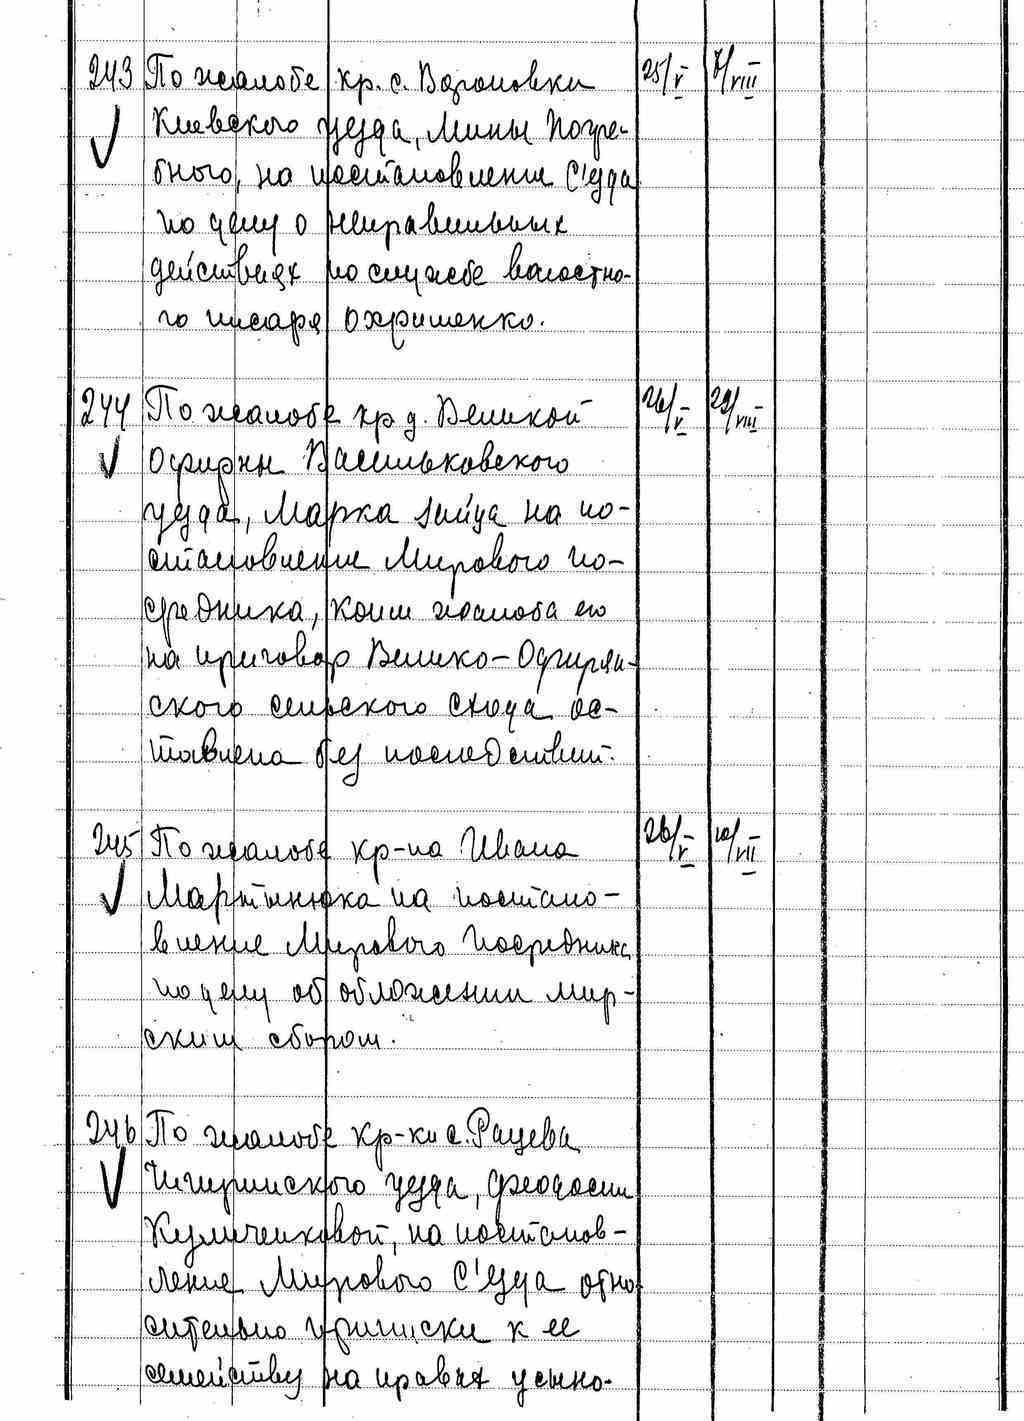 243 По жалобе кр. с. Вороновки 25/V 7/VIII
Киевского уезда, Мины Погре-
бного, на постановление С'езда
по делу о неправильных
действиях по службе волостно-
го писаря Охрименко.
244 По жалобе кр д. Великой 26/V 29/VIII
Офирны Васильковского
уезда, Марка Зайца на по-
становление Мирового по-
средника, коим жалоба его
на приговор Велико-Офирян-
ского сельского схода ос-
тавлена без последствий.
245 По жалобе кр-на Ивана 26/V 10/VII
Мартынюка на постано-
вление Мирового Посредника
по делу об обложении мир-
ским сбором.
246 По жалобе кр-ки с. Рацева
Чигиринского уезда, Феодосии
Куличенковой, на постанов-
ление Мирового С'езда отно
сительно приписки к ее
семейству на правах усыно-